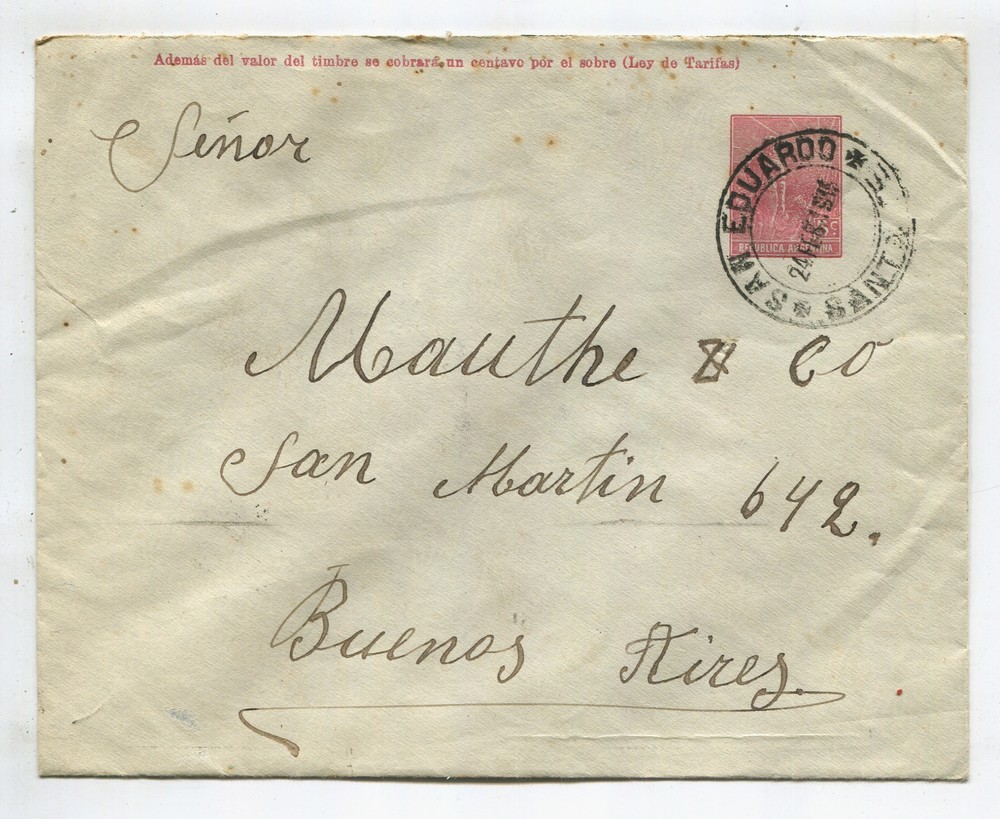 Además del valor del timbre se cobrará un centavo por el sobre (Ley de Tarifas)
Señor
5c
REPUBLICA ARGENTINA
SAN EDUARDO
SANTA
24 FEB
Mauthe & Co
San Martin 642.
Buenos Aires.